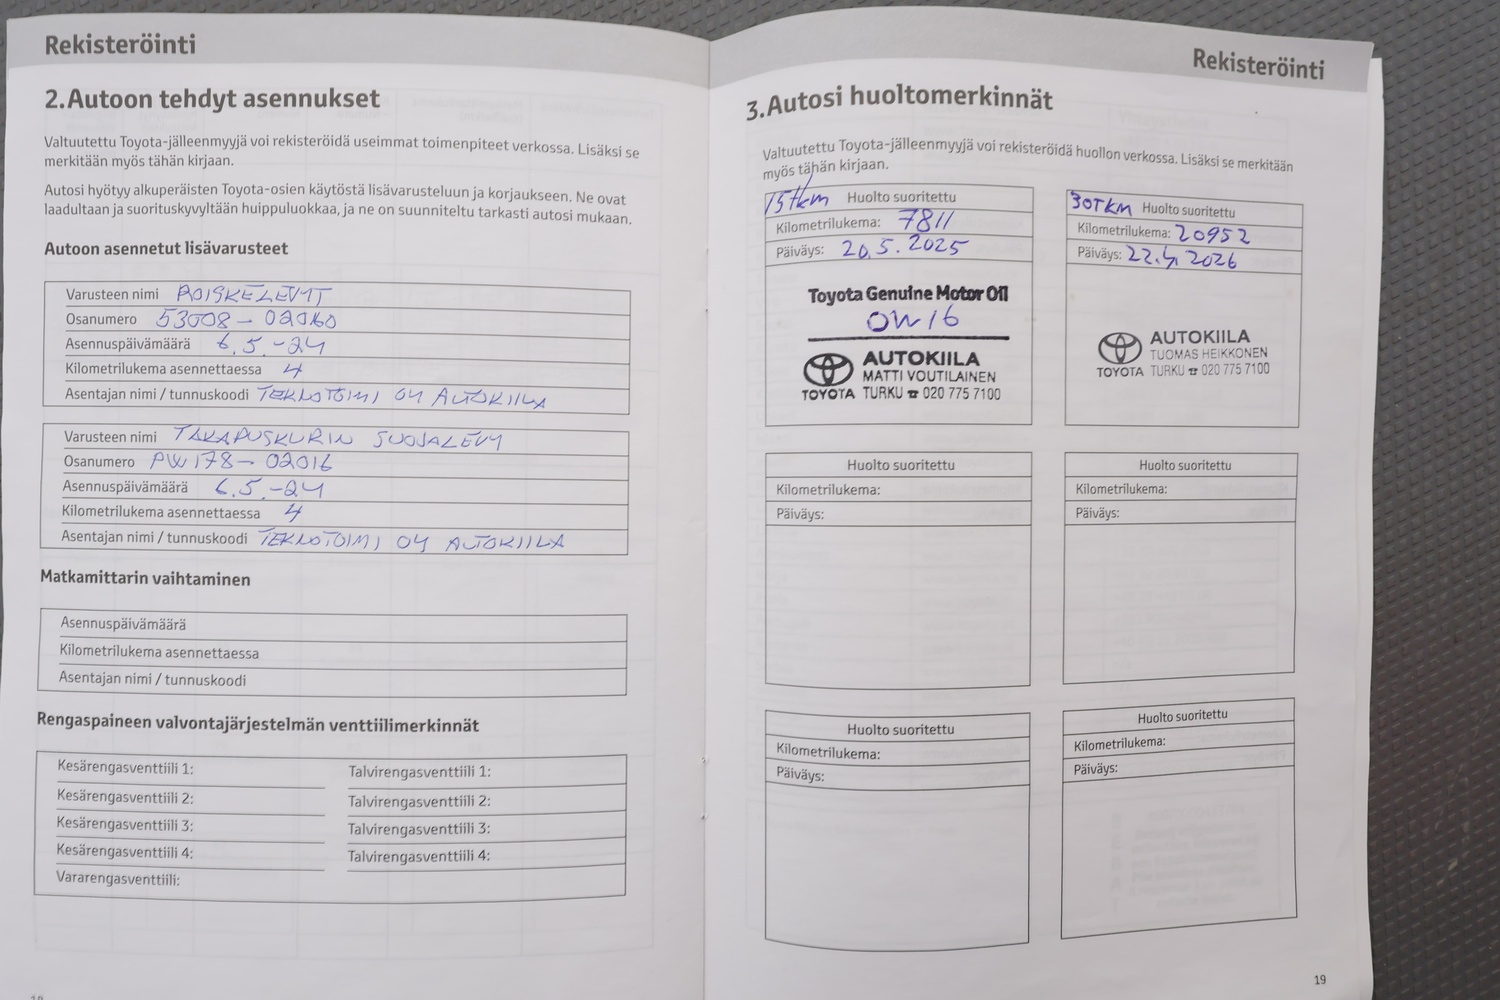 Rekisteröinti
2.Autoon tehdyt asennukset
Valtuutettu Toyota-jälleenmyyjä voi rekisteröidä useimmat toimenpiteet verkossa. Lisäksi se
merkitään myös tähän kirjaan.
Autosi hyötyy alkuperäisten Toyota-osien käytöstä lisävarusteluun ja korjaukseen. Ne ovat
laadultaan ja suorituskyvyltään huippuluokkaa, ja ne on suunniteltu tarkasti autosi mukaan.
Autoon asennetut lisävarusteet
Varusteen nimi ROISKELEVYT
Osanumero 53008-02060
Asennuspäivämäärä 6.5.-24
Kilometrilukema asennettaessa 4
Asentajan nimi / tunnuskoodi TEKNOTOIMI OY AUTOKIILA
Varusteen nimi TAKAPUSKURIN SUOJALEVY
Osanumero PW178-02016
Asennuspäivämäärä 6.5.-24
Kilometrilukema asennettaessa 4
Asentajan nimi / tunnuskoodi TEKNOTOIMI OY AUTOKIILA
Matkamittarin vaihtaminen
Asennuspäivämäärä
Kilometrilukema asennettaessa
Asentajan nimi / tunnuskoodi
Rengaspaineen valvontajärjestelmän venttiilimerkinnät
Kesärengasventtiili 1: Talvirengasventtiili 1:
Kesärengasventtiili 2: Talvirengasventtiili 2:
Kesärengasventtiili 3: Talvirengasventtiili 3:
Kesärengasventtiili 4: Talvirengasventtiili 4:
Vararengasventtiili:
Rekisteröinti
3.Autosi huoltomerkinnät
Valtuutettu Toyota-jälleenmyyjä voi rekisteröidä huollon verkossa. Lisäksi se merkitään
myös tähän kirjaan.
15tkm Huolto suoritettu
Kilometrilukema: 7811
Päiväys: 20.5.2025
Toyota Genuine Motor Oil
0W16
AUTOKIILA
MATTI VOUTILAINEN
TOYOTA TURKU ☎ 020 775 7100
30TKM Huolto suoritettu
Kilometrilukema: 20952
Päiväys: 22.4.2026
AUTOKIILA
TUOMAS HEIKKONEN
TOYOTA TURKU ☎ 020 775 7100
Huolto suoritettu
Kilometrilukema:
Päiväys:
Huolto suoritettu
Kilometrilukema:
Päiväys:
Huolto suoritettu
Kilometrilukema:
Päiväys:
Huolto suoritettu
Kilometrilukema:
Päiväys:
19